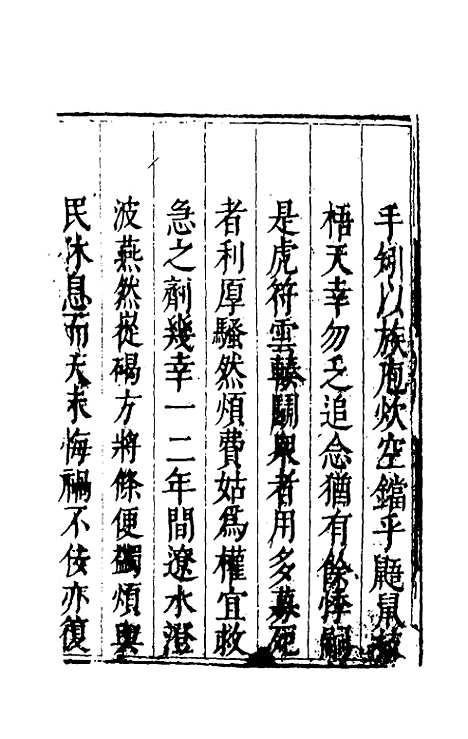 手劍以族庖炊空鐺乎鼯鼠枝
梧天幸勿乏追念猶有餘悸嗣
是虎符雲轃鬬眾者用多募死
者利厚騷然煩費姑為權宜救
急之劑幾幸一二年間遼水澄
波燕然從碣方將條便蠲煩與
民休息而天未悔禍不佞亦復